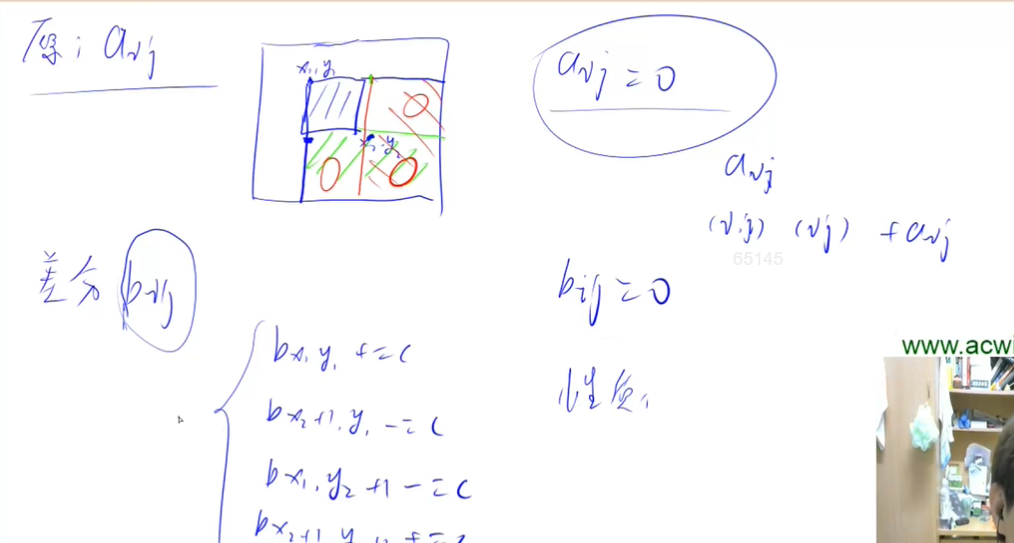 原: aij
x1,y1
x2,y2
aij = 0
aij
(i,j) (i,j) +aij
65145
差分 bij
bij = 0
bx1,y1 += c
bx2+1,y1 -= c
bx1,y2+1 -= c
性质:
www.acwi